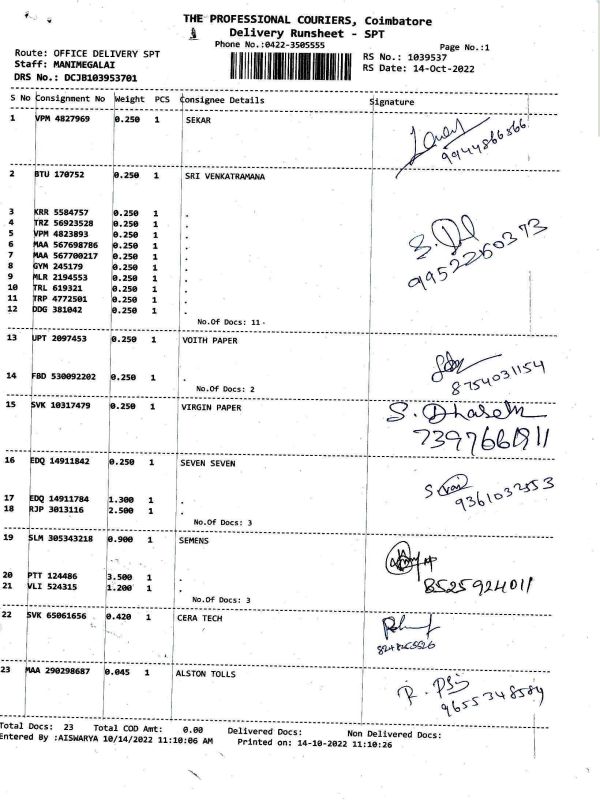 THE PROFESSIONAL COURIERS, Coimbatore
Delivery Runsheet - SPT
Phone No.:0422-3505555
Page No.:1
Route: OFFICE DELIVERY SPT
RS No.: 1039537
Staff: MANIMEGALAI
RS Date: 14-Oct-2022
DRS No.: DCJB103953701
S No Consignment No Weight PCS Consignee Details Signature
1 VPM 4827969 0.250 1 SEKAR
9944866566
2 BTU 170752 0.250 1 SRI VENKATRAMANA
3 KRR 5584757 0.250 1 .
4 TRZ 56923528 0.250 1 .
5 VPM 4823893 0.250 1 .
6 MAA 567698786 0.250 1 .
7 MAA 567700217 0.250 1 .
8 GYM 245179 0.250 1 .
9 MLR 2194553 0.250 1 .
10 TRL 619321 0.250 1 .
11 TRP 4772501 0.250 1 .
12 DDG 381042 0.250 1 .
9952260373
No.Of Docs: 11
13 UPT 2097453 0.250 1 VOITH PAPER
14 FBD 530092202 0.250 1 .
8754031154
No.Of Docs: 2
15 SVK 10317479 0.250 1 VIRGIN PAPER
16 EDQ 14911842 0.250 1 SEVEN SEVEN
17 EDQ 14911784 1.300 1 .
18 RJP 3013116 2.500 1 .
No.Of Docs: 3
19 SLM 305343218 0.900 1 SEMENS
20 PTT 124486 3.500 1 .
21 VLI 524315 1.200 1 .
8525924011
No.Of Docs: 3
22 SVK 65061656 0.420 1 CERA TECH
23 MAA 290298687 0.045 1 ALSTON TOLLS
9655348584
Total Docs: 23 Total COD Amt: 0.00 Delivered Docs: Non Delivered Docs:
Entered By :AISWARYA 10/14/2022 11:10:06 AM Printed on: 14-10-2022 11:10:26